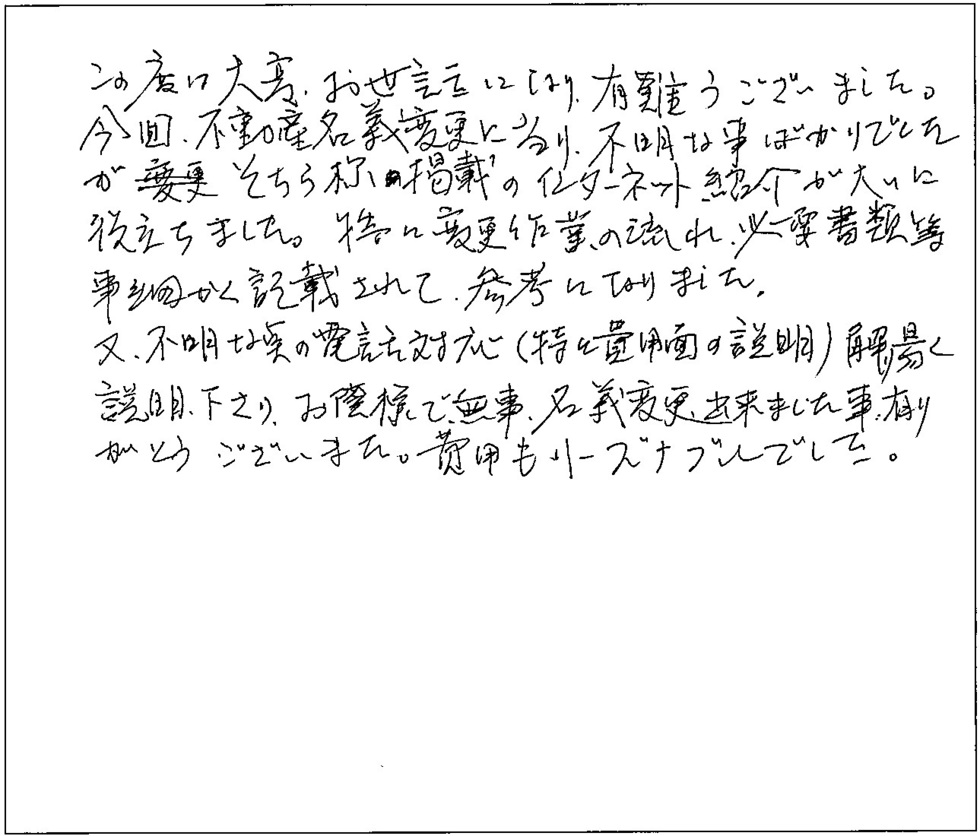 この度は大変、お世話になり、有難うございました。
今回、不動産名義変更に当り、不明な事ばかりでした
が変更そちら様の掲載のインターネット紹介が大いに
役立ちました。特に変更作業の流れ、必要書類等
事細かく記載されて、参考になりました。
又、不明な点の電話対応(特に費用面の説明)解り易く
説明、下さり、お陰様で、無事、名義変更、出来ました事、有り
がとうございました。費用もリーズナブルでした。